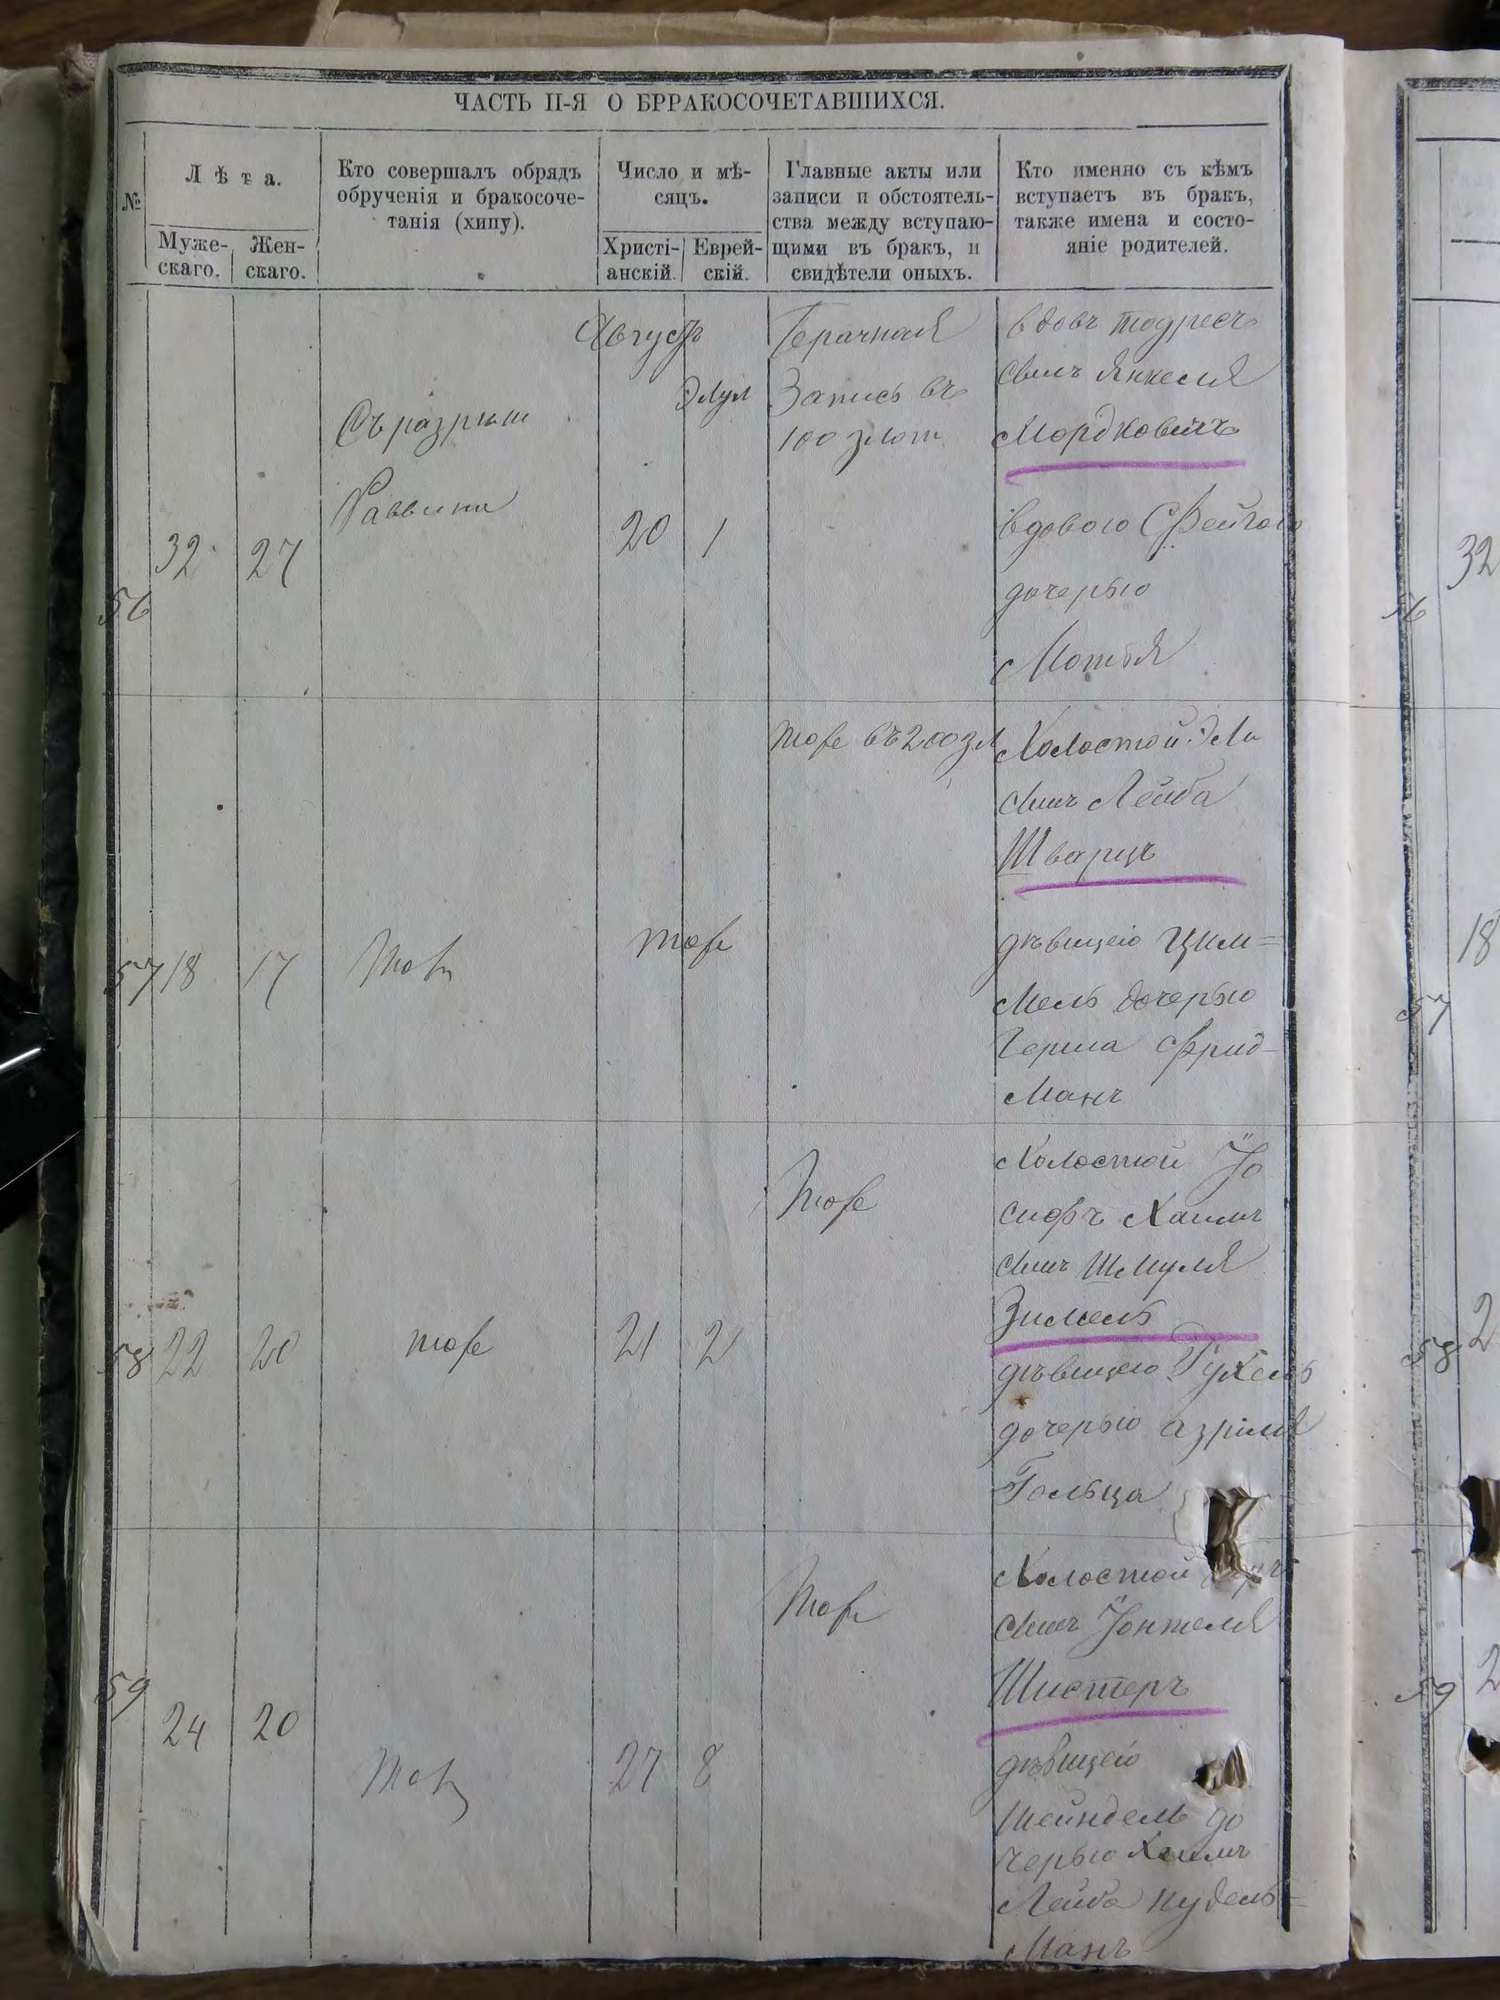 ЧАСТЬ II-Я О БРРАКОСОЧЕТАВШИХСЯ.
№
Лѣта.
Муже-
скаго.
Жен-
скаго.
Кто совершалъ обрядъ
обрученія и бракосоче-
танія (хипу).
Число и мѣ-
сяцъ.
Христі-
анскій.
Еврей-
скій.
Главные акты или
записи и обстоятель-
ства между вступаю-
щими въ бракъ, и
свидѣтели оныхъ.
Кто именно съ кѣмъ
вступаетъ въ бракъ,
также имена и состо-
яніе родителей.
56
32
27
Съ разрѣш
Раввина
Августъ
Элул
20
1
Запись въ
100 злот
вдовъ Тодресъ
сынъ Янкеля
Мордковичъ
вдовою Фейгою
дочерью
Мотья
57
18
17
тоже
тоже
тоже въ 200 зл
Холостой Эли
сынъ Лейба
Шварцъ
дѣвицею Цим=
мель дочерью
Герша Фрид-
манъ
58
22
20
тоже
21
2
тоже
Холостой Іо
сифъ Хаимъ
сынъ Шмуля
Зимель
дѣвицею Рухель
дочерью Азріля
Гольца
59
24
20
тоже
27
8
тоже
Холостой
сынъ Іонтеля
Шистеръ
дѣвицею
Шейндель до
черью Хаимъ
Лейба Нудель=
манъ
32
56
18
57
2
58
2
59